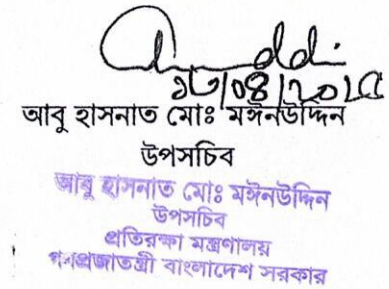 আবু হাসনাত মোঃ মঈনউদ্দিন
উপসচিব
আবু হাসনাত মোঃ মঈনউদ্দিন
উপসচিব
প্রতিরক্ষা মন্ত্রণালয়
গণপ্রজাতন্ত্রী বাংলাদেশ সরকার